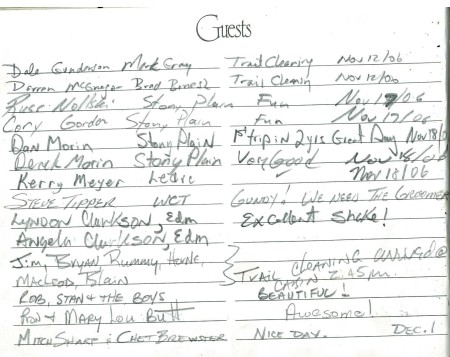 Guests
Dale Gunderson Mark Gray Trail Clearing Nov 12/06
Darren McGregor Brad Trail Clearing Nov 12/06
Russ Stony Plain Fun Nov 17/06
Cory Gordon Stony Plain Fun Nov 17/06
Dan Morin Stony Plain 1st trip in 2 yrs Great Day Nov 18/0
Derek Morin Stony Plain Very Good Nov 18/06
Kerry Meyer Leduc ✓ Nov 18/06
STEVE TIPPER WCT GUNDY! WE NEED THE GROOMER
LYNDON Clarkson, Edm Excellent Shake!
Angela Clarkson, Edm
Jim, Bryan Rummy, Howie,
MacLeod, Blain TRAIL CLEANING ARRIVED @ CABIN 2:45 pm.
ROB, STAN & THE BOYS BEAUTIFUL!
Ron & Mary Lou Butt Awesome!
MITCH SHARP & CHET BREWSTER NICE DAY. DEC. 1